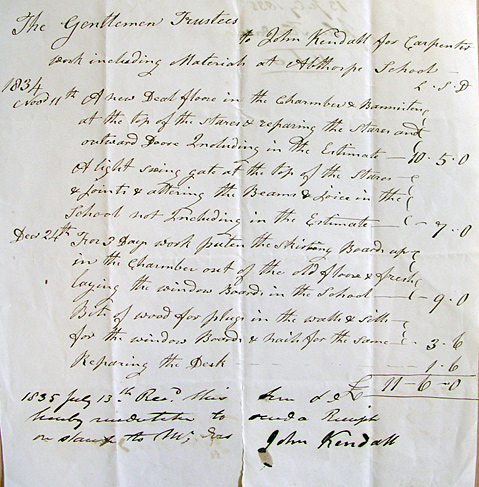 The Gentlemen Trustees
to John Kendall for Carpenter
work including Materials at Abthorpe School
L S D
1834
Novr 11th A new Deal floore in the Chamber & Bannister
at the top of the stares & reparing the stares and
outward Doore Including in the Estimate — 10 . 5 . 0
A light swing gate at the top of the stares
& Joints & altering the Beams & Joice in the
School not Including in the Estimate — 7 . 0
Decr 24th For 3 Days work puten the skirting Boards up
in the Chamber out of the old floore & fresh
laying the window Boards in the School — 9 . 0
Bits of wood for plugs in the walls &
for the window Boards & nails for the same — 3 . 6
Reparing the Desk 1 . 6
£ 11 – 6 – 0
1835 July 13th Recd this
hereby undertake to send a
on stamp to Mr
John Kendall